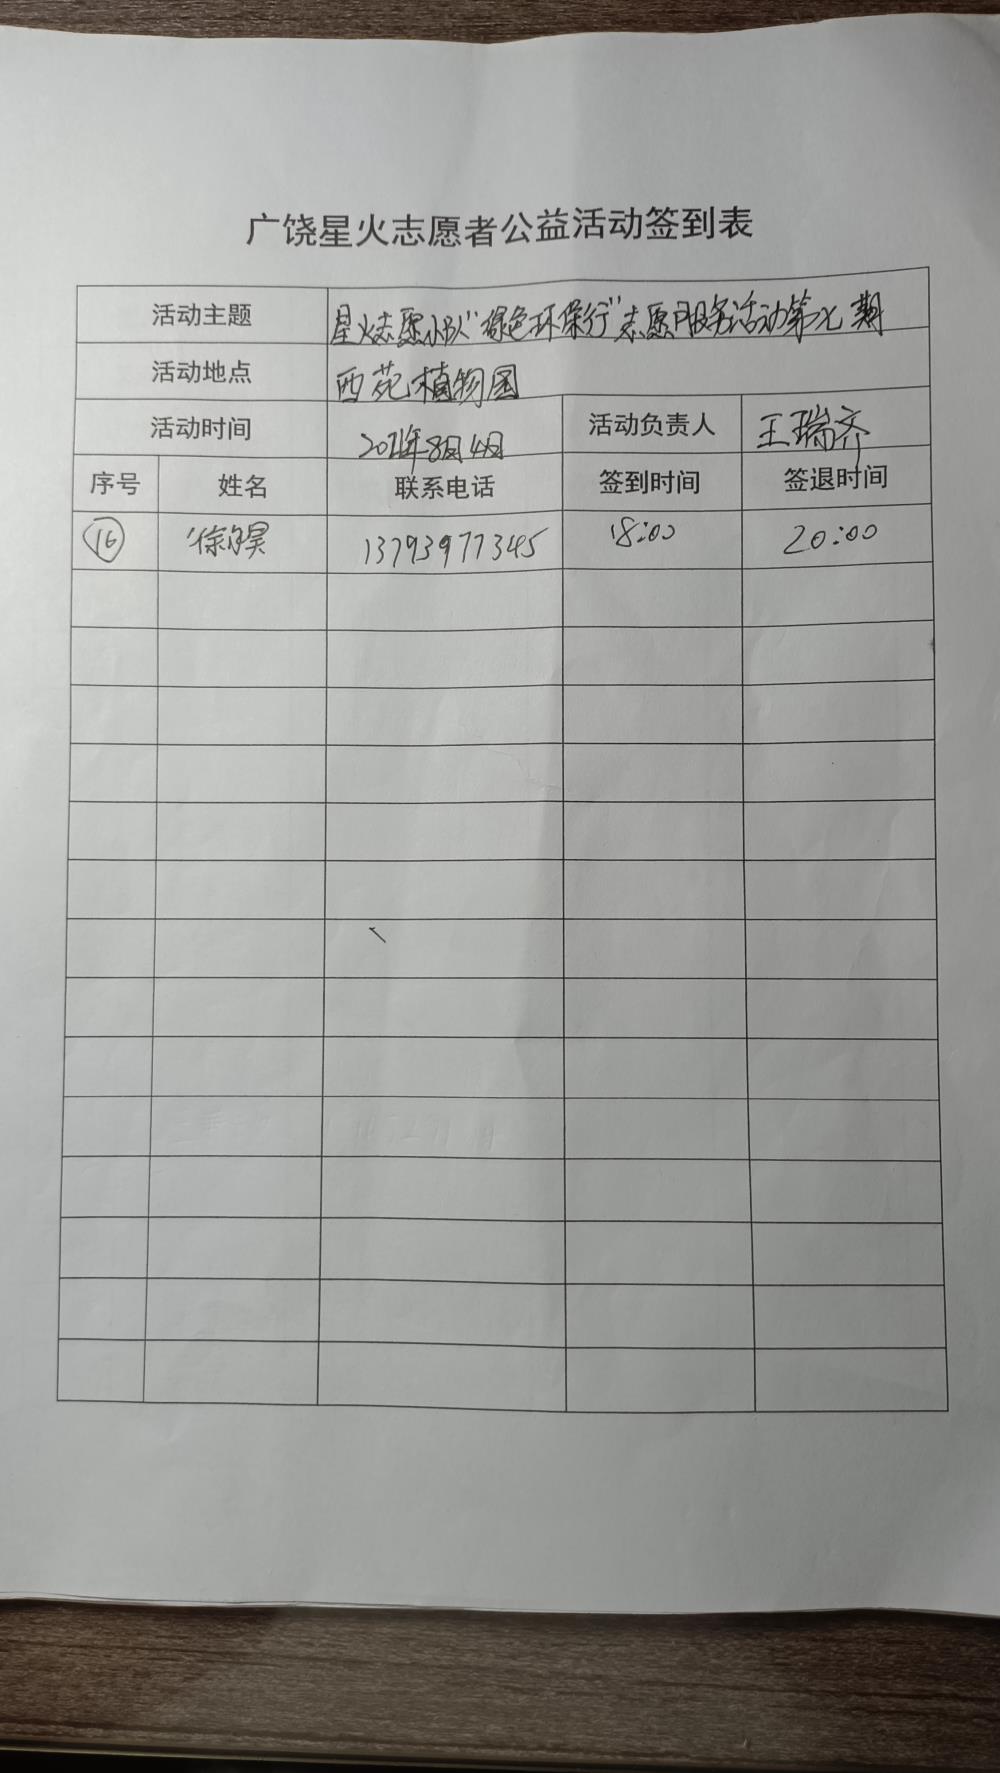 广饶星火志愿者公益活动签到表
活动主题 星火志愿小队"绿色环保行"志愿服务活动第七期
活动地点 西苑植物园
活动时间 年8月4日 活动负责人 王瑞齐
序号 姓名 联系电话 签到时间 签退时间
16 徐 昊 13793977345 18:00 20:00